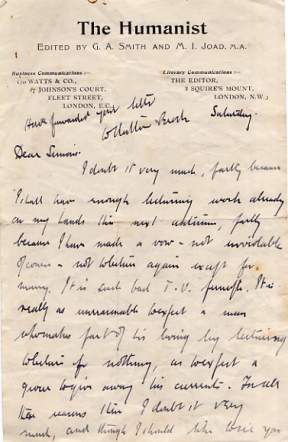 The Humanist
EDITED BY G. A. SMITH AND M. I. JOAD, M.A.
Business Communications—
c/o WATTS & CO.,
17 JOHNSON'S COURT,
FLEET STREET,
LONDON, E.C.
Literary Communications—
THE EDITOR,
2 SQUIRE'S MOUNT,
LONDON, N.W.3
Have forwarded your letter
to Clutton Brock
Saturday.
Dear Simons.
I doubt it very much, partly because
I shall have enough lecturing work already
on my hands this next autumn, partly
because I have made a vow - not inviolable
of course - not to lecture again except for
money. It is such bad T.U. It is
really as unreasonable to expect a man
who makes part of his living by lecturing
to lecture for nothing, as to expect a
grocer to give away his currants. For all
these reasons then I doubt it very
much, and though I should like to see you